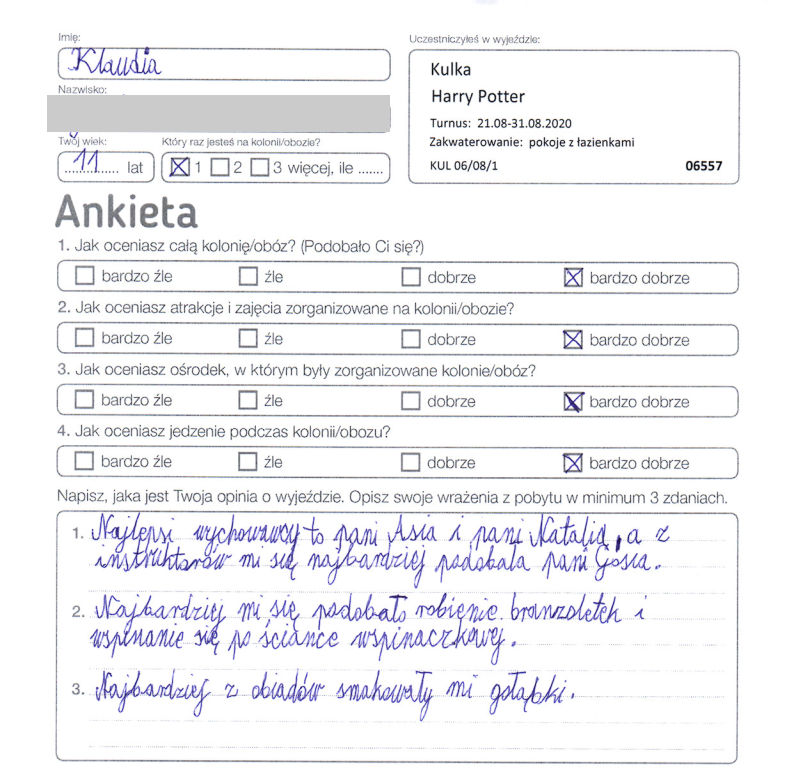 Imię:
Klaudia
Nazwisko:
Twój wiek:
11 lat
Który raz jesteś na kolonii/obozie?
1 2 3 więcej, ile .......
Uczestniczyłeś w wyjeździe:
Kulka
Harry Potter
Turnus: 21.08-31.08.2020
Zakwaterowanie: pokoje z łazienkami
KUL 06/08/1 06557
Ankieta
1. Jak oceniasz całą kolonię/obóz? (Podobało Ci się?)
bardzo źle źle dobrze bardzo dobrze
2. Jak oceniasz atrakcje i zajęcia zorganizowane na kolonii/obozie?
bardzo źle źle dobrze bardzo dobrze
3. Jak oceniasz ośrodek, w którym były zorganizowane kolonie/obóz?
bardzo źle źle dobrze bardzo dobrze
4. Jak oceniasz jedzenie podczas kolonii/obozu?
bardzo źle źle dobrze bardzo dobrze
Napisz, jaka jest Twoja opinia o wyjeździe. Opisz swoje wrażenia z pobytu w minimum 3 zdaniach.
1. Najlepsi wychowawcy to pani Asia i pani Natalia, a z
instruktorów mi się najbardziej podobała pani Gosia.
2. Najbardziej mi się podobało robienie branzoletek i
wspinanie się po ściance wspinaczkowej.
3. Najbardziej z obiadów smakowały mi gołąbki.